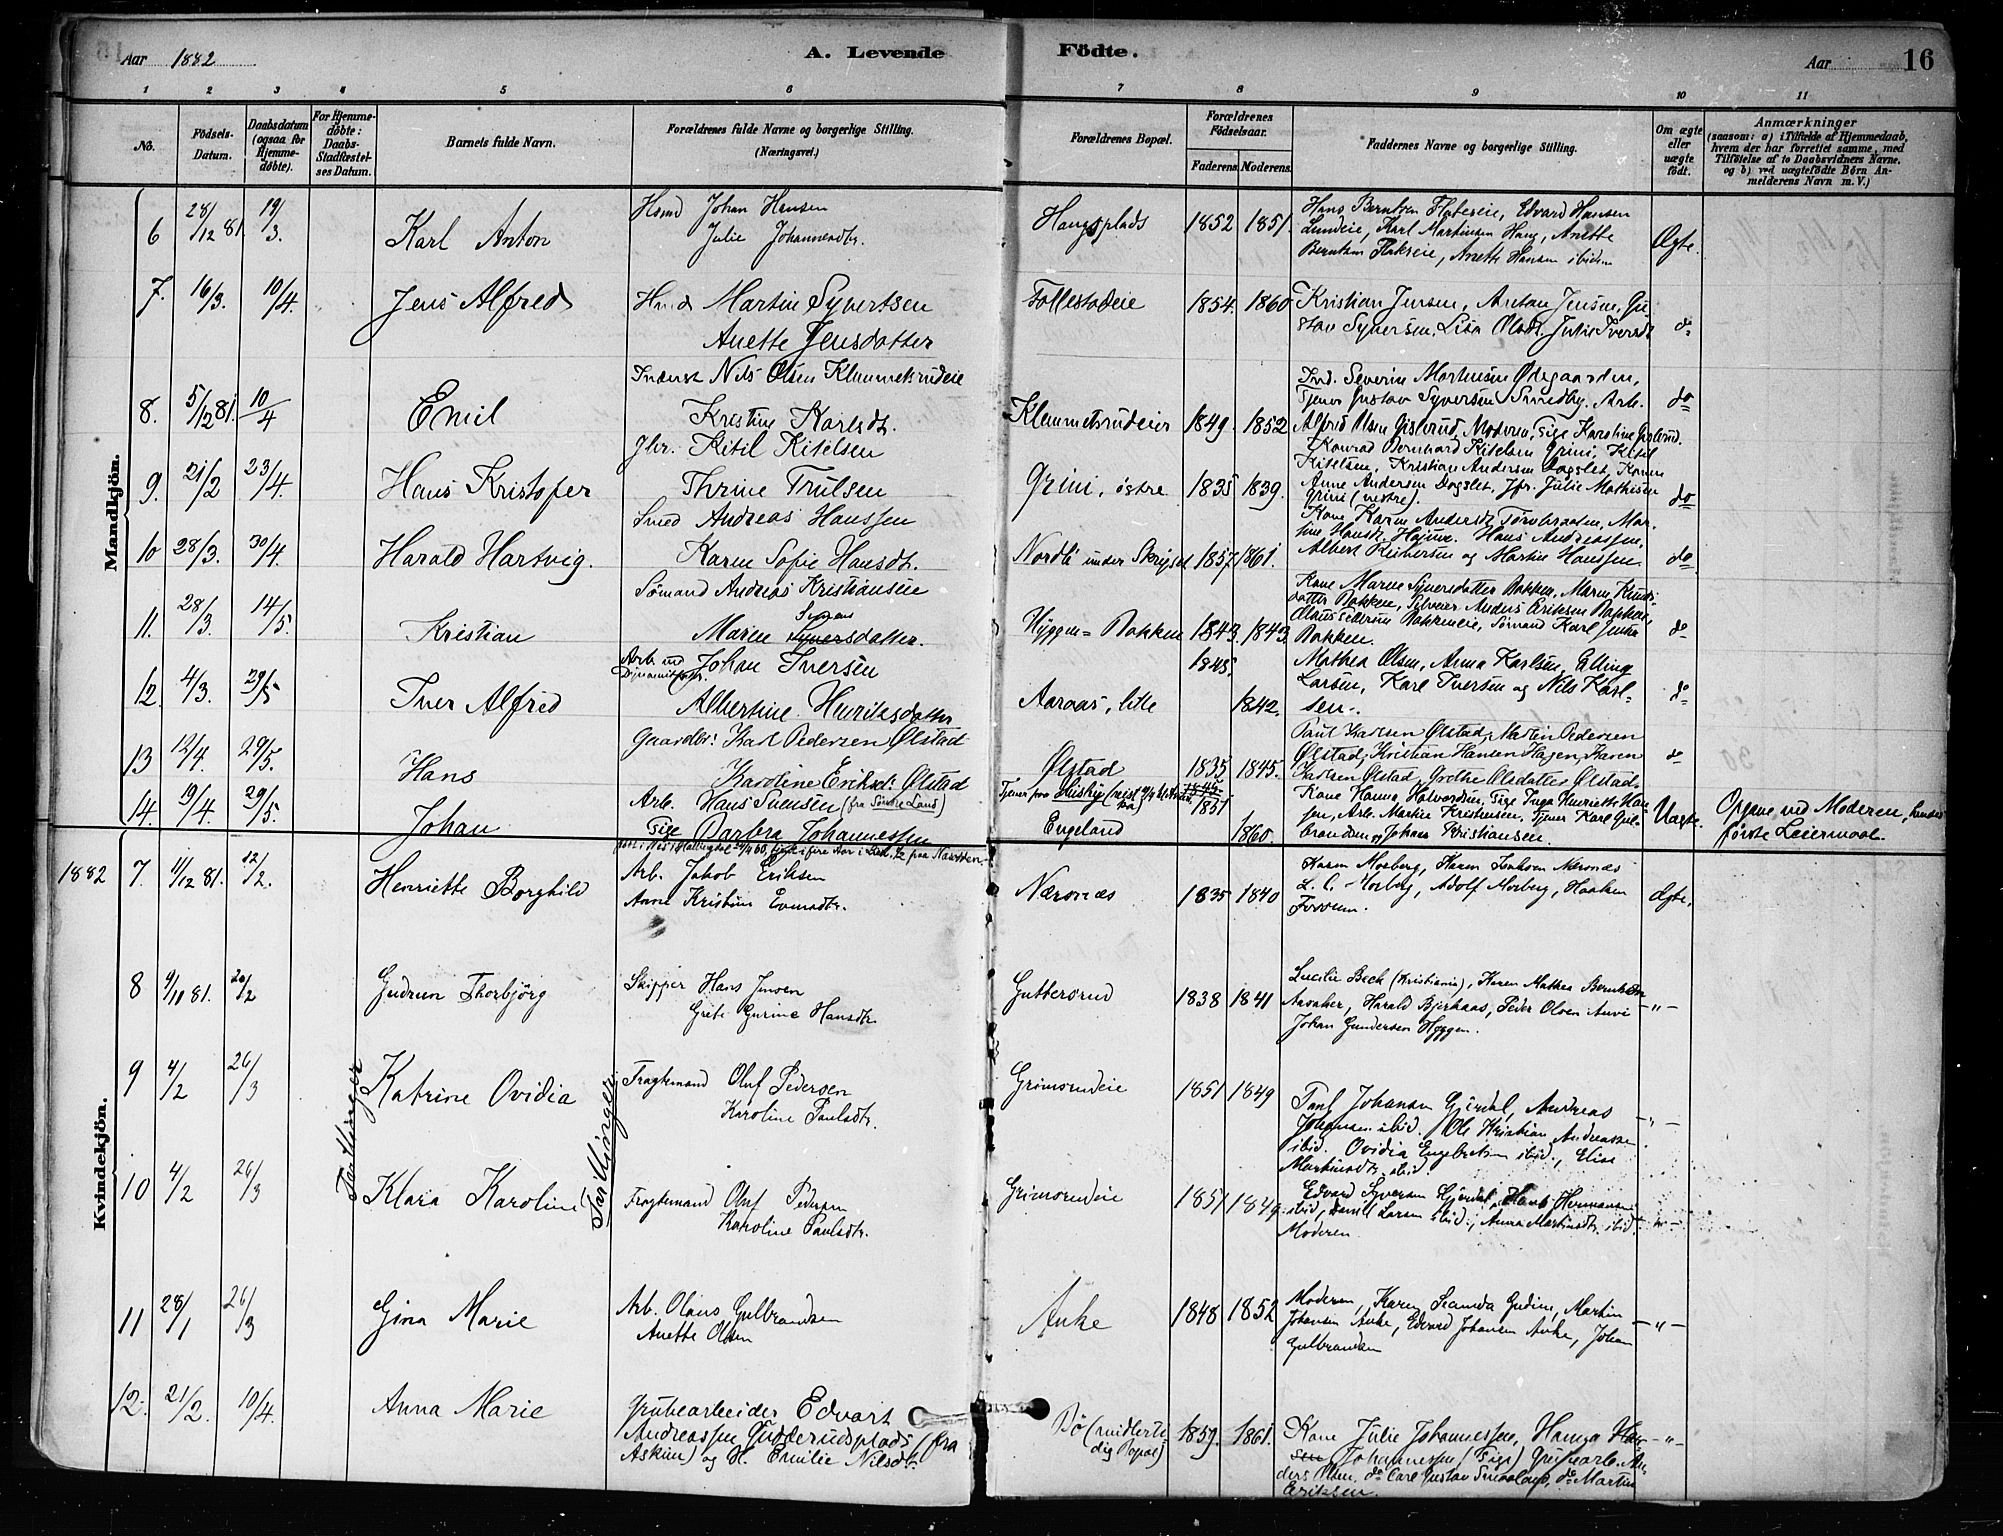 Aar 1882 A. Levende Födte. Aar 16
1 2 3 4 5 6 7 8 9 10 11
No. Födsels-Datum. Daabsdatum (ogsaa for Hjemmedöbte). For Hjemmedöbte: Daabs-Stadfæstelses Datum. Barnets fulde Navn. Forældrenes fulde Navne og borgerlige Stilling. (Næringsvei.) Forældrenes Bopæl. Forældrenes Födselsaar. Faderens. Moderens. Faddernes Navne og borgerlige Stilling. Om ægte eller uægte födt. Anmærkninger (saasom: a) i Tilfælde af Hjemmedaab, hvem der har forrettet samme, med Tilföielse af to Daabsvidners Navne, og b) ved uægtefödte Börn Anmelderens Navn m. V.)
Mandkjön.
6 28/12 81 19/3. Karl Anton Hsmd Johan Hansen
Julie Johannesdtr. Haugsplads 1852 1851. Hans Berntsen Flateseie, Edvard Hansen
Lundeie, Karl Martinsen Haug, Anette
Berntsen, Anette Hansen ibidem Ægte.
7. 16/3. 10/4. Jens Alfred Hsmd Martin Syvertsen
Anette Jensdatter Follestadeie 1854. 1860 Kristian Jensen, Anton Jensen, Gu
stav Syversen, Lisa Olsdt. Julie Iversdt do
8. 5/12 81. 10/4 Emil Inderst Nils Olsen Klemmetsrudeie
Kristine Karlsdt. Klemmetsrudeier 1849. 1852 Ind. Severin Mortensen Ødegaarden,
Tjener Gustav Syversen Smedby, Arb.
Alfred Olsen Gislerud, Moderen, Pige Karoline Gislerud. do
9. 21/2 23/4. Hans Kristofer Gbr. Kitil Kitelsen
Thrine Trulsen Grini, østre 1835 1839. Konrad Bernhard Kitelsen Grini, Kitil
Kitelsen, Kristian Andersen Dagslet, Kone
Anne Andersen Dagslet, Jfr. Julie Mathisen
Grini (vestre). do
10 28/3. 30/4. Harald Hartvig. Smed Andreas Hanssen
Karen Sofie Hansdt. Nordli under 1857 1861. Kone Karen Andersdt, Mar-
tine Hansdt, Hans Andreassen,
Albert og Martin Hanssen do
11. 28/3. 14/5. Kristian Sømand Andreas Kristiansen
Maren Syversdatter. Hyggen=Bakken 1843. 1843. Kone Maren Syversdatter Bakken, Maren Knuds-
datter Bakken, Selveier Anders Eriksen Bakken,
Bakkeneie, Sømand Karl
Bakken. do
12. 4/3. 29/5 Iver Alfred Arb. ved
Dynamitfabr. Johan Iversen
Albertine Henriksdatter Aaraas, lille 1845. 1842. Mathea Olsen, Anna Karlsen, Elling
Larsen, Karl Iversen og Nils Karl-
sen. do
13 12/4. 29/5. Hans Gaardbr: Karl Pedersen Ølstad
Karoline Eriksd: Ølstad Ølstad 1835 1845. Paul Karlsen Ølstad, Martin Pedersen
Ølstad, Kristian Hansen Hagen, Karen
Karlsen Ølstad, Grethe Olsdatter Ølstad. do
14. 19/4. 29/5. Johan Arb. Hans Svensen (fra Søndre Land)
Pige Barbra Johannessen Tjener paa
Engeland 1851 1860. Kone Hanna Halvordsen, Pige Inga Henriette Han-
sen, Arb. Martin Kristensen, Tjener Karl Gul-
brandsen og Johan Kristiansen. Uægte. Opgave ved Moderen, hendes
første Leiermaal.
Kvindekjön.
1882 7. 11/12 81. 12/2. Henriette Borghild Arb. Jakob Eriksen
Anne Kristine Evensdtr. Næsnæs 1835 1840 Karen Morberg, Karen Næsnæs
L. C. Morberg, Adolf Morberg, Haaken
Fossum. Ægte.
8 9/11 81. 20/2 Gudrun Thorbjörg Skipper Hans Jensen
Grete Gurine Hansdtr. Guttersrud 1838 1841 Lucilie Bech (Kristiania), Karen Mathea Berntsen
Aasaker, Harald Bjerkaas, Peder Olsen Auvi
Johan Gundersen Hyggen. -"-
Tvillinger Tvillinger
9 4/2 26/3 Katrine Ovidia Fragtemand Oluf Pedersen
Karoline Paulsdtr. Grimsrudeie 1851 1849 Paul Johansen Gjerdal, Andreas
Johansen ibid. Ole Kristian Andreassen
ibid. Ovidia Engebretsen ibid., Elise
Martinsdtr. ibid. -"-
10 4/2 26/3 Klara Karoline Fragtemand Oluf Pedersen
Karoline Paulsdtr. Grimsrudeie 1851 1849 Edvard Syversen Gjerdal, Hans Hermansen
ibid, Larsen ibid., Anna Martinsdtr ibid.
Moderen. -"-
11 28/1 26/3 Gina Marie Arb. Olaus Gulbrandsen
Anette Olsen Auke 1848 1852 Moderen, Karen, Martin
Johansen Auke, Edvard Johansen Auke, Johan
Gulbrandsen -"-
12. 21/2. 10/4. Anna Marie Grubearbeider Edvart
Andreassen Gudderudsplads (fra
Askim) og H. Emilie Nilsdt. Bö (midlerti-
dig Bopæl) 1859. 1861. Kone Julie Johannessen, Hanna Han-
sen Johannessen (Pige) Grubearb. An-
ders Olsen, do Carl Gustav, do Martin
Eriksen. -"-